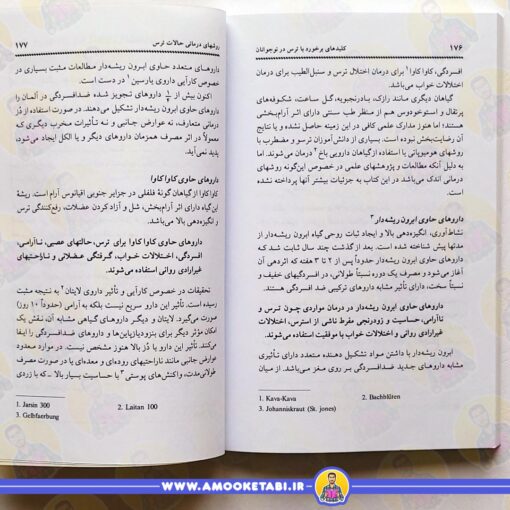 ۱۷۶ کلیدهای برخورد با ترس در نوجوانان
افسردگی، کاوا کاوا۱ برای درمان اختلال ترس و سنبل‌الطیب برای درمان
اختلالات خواب می‌باشد.
گیاهان دیگری مانند رازک، بادرنجبویه، گل ساعت، شکوفه‌های
پرتقال و استوخودوس هم از منظر طب سنتی دارای اثر آرام‌بخشی
هستند؛ اما هنوز مدارک علمی کافی در این زمینه حاصل نشده و یا نتایج
آن رضایت‌بخش نبوده است. بسیاری از دانش‌آموزان ترسو و مضطرب با
روشهای هومیوپاتی با استفاده از گیاهان دارویی باخ۲ درمان می‌شوند. اما
به دلیل آنکه مطالعات و پژوهشهای علمی در خصوص این‌گونه روشهای
درمانی اندک می‌باشد در این کتاب به جزئیات بیشتر آنها پرداخته نشده
است.
داروهای حاوی ابرون ریشه‌دار۳
نشاط‌آوری، انگیزه‌دهی بالا و ایجاد ثبات روحی گیاه ابرون ریشه‌دار از
مدتها پیش شناخته شده است. بعد از گذشت چند سال ثابت شد که
داروهای حاوی ابرون ریشه‌دار حدوداً پس از ۲ تا ۳ هفته که اثردهی آن
آغاز می‌شود و مصرف یک دوره نسبتاً طولانی، در افسردگیهای خفیف و
نسبتاً سخت، دارای تأثیر مشابه داروهای ترکیبی ضد افسردگی هستند.
داروهای حاوی ابرون ریشه‌دار در درمان مواردی چون ترس و
ناآرامی، حساسیت و زودرنجی مفرط ناشی از استرس، اختلالات
غیرارادی روانی و اختلالات خواب با موفقیت استفاده می‌شوند.
ابرون ریشه‌دار با داشتن مواد تشکیل دهنده متعدد دارای تأثیری
مشابه داروهای جدید ضدافسردگی بر روی مغز می‌باشد. از میان
1. Kava-Kava 2. Bachblüten
3. Johanniskraut (St. jones)
روشهای درمانی حالات ترس ۱۷۷
داروهای متعدد حاوی ابرون ریشه‌دار مطالعات مثبت بسیاری در
خصوص کارآیی داروی یارسین۱ در دست است.
اکنون بیش از داروهای تجویز شده ضدافسردگی در آلمان را
داروهای حاوی ابرون ریشه‌دار تشکیل می‌دهند. در صورت استفاده از دُز
درمانی متعارف، نه عوارض جانبی و نه تأثیرات مخرب دیگری که
معمولاً در اثر مصرف همزمان داروهای دیگر و یا الکل ایجاد می‌شود،
پدید نمی‌آید.
داروهای حاوی کاوا کاوا
کاوا کاوا از گیاهان گونهٔ فلفلی در جزایر جنوبی اقیانوس آرام است. ریشهٔ
این گیاه دارای اثر آرام‌بخش، شل و آزاد کردن عضلات، رفع‌کنندگی ترس
و انگیزه‌دهی بالا می‌باشد.
داروهای حاوی کاوا کاوا برای ترس، حالتهای عصبی، ناآرامی،
افسردگی، اختلالات خواب، گرفتگی عضلانی و ناراحتیهای
غیرارادی روانی استفاده می‌شوند.
تحقیقات در خصوص کارآیی و تأثیری داروی لایتان۲ به نتیجه مثبت
رسیده است. تأثیر این دارو سریع نیست بلکه به آرامی (حدوداً ۱۰ روز)
صورت می‌گیرد. لایتان و دیگر داروهای گیاهی مشابه آن، نقش یک
امکان مؤثر دیگر برای بنزودیازپاین‌ها و داروهای ضدافسردگی را ایفا
می‌کنند. تأثیر این دارو با دُز بالا هنوز مشخص نیست. به صورت نادر،
عوارض جانبی مانند ناراحتیهای روده‌ای و معده‌ای یا در صورت مصرف
طولانی‌مدت، واکنش‌های پوستی۳ با حساسیت بسیار بالا ـ که با زردی
1. Jarsin 300 2. Laitan 100
3. Gelbfaerbung
WWW.AMOOKETABI.IR